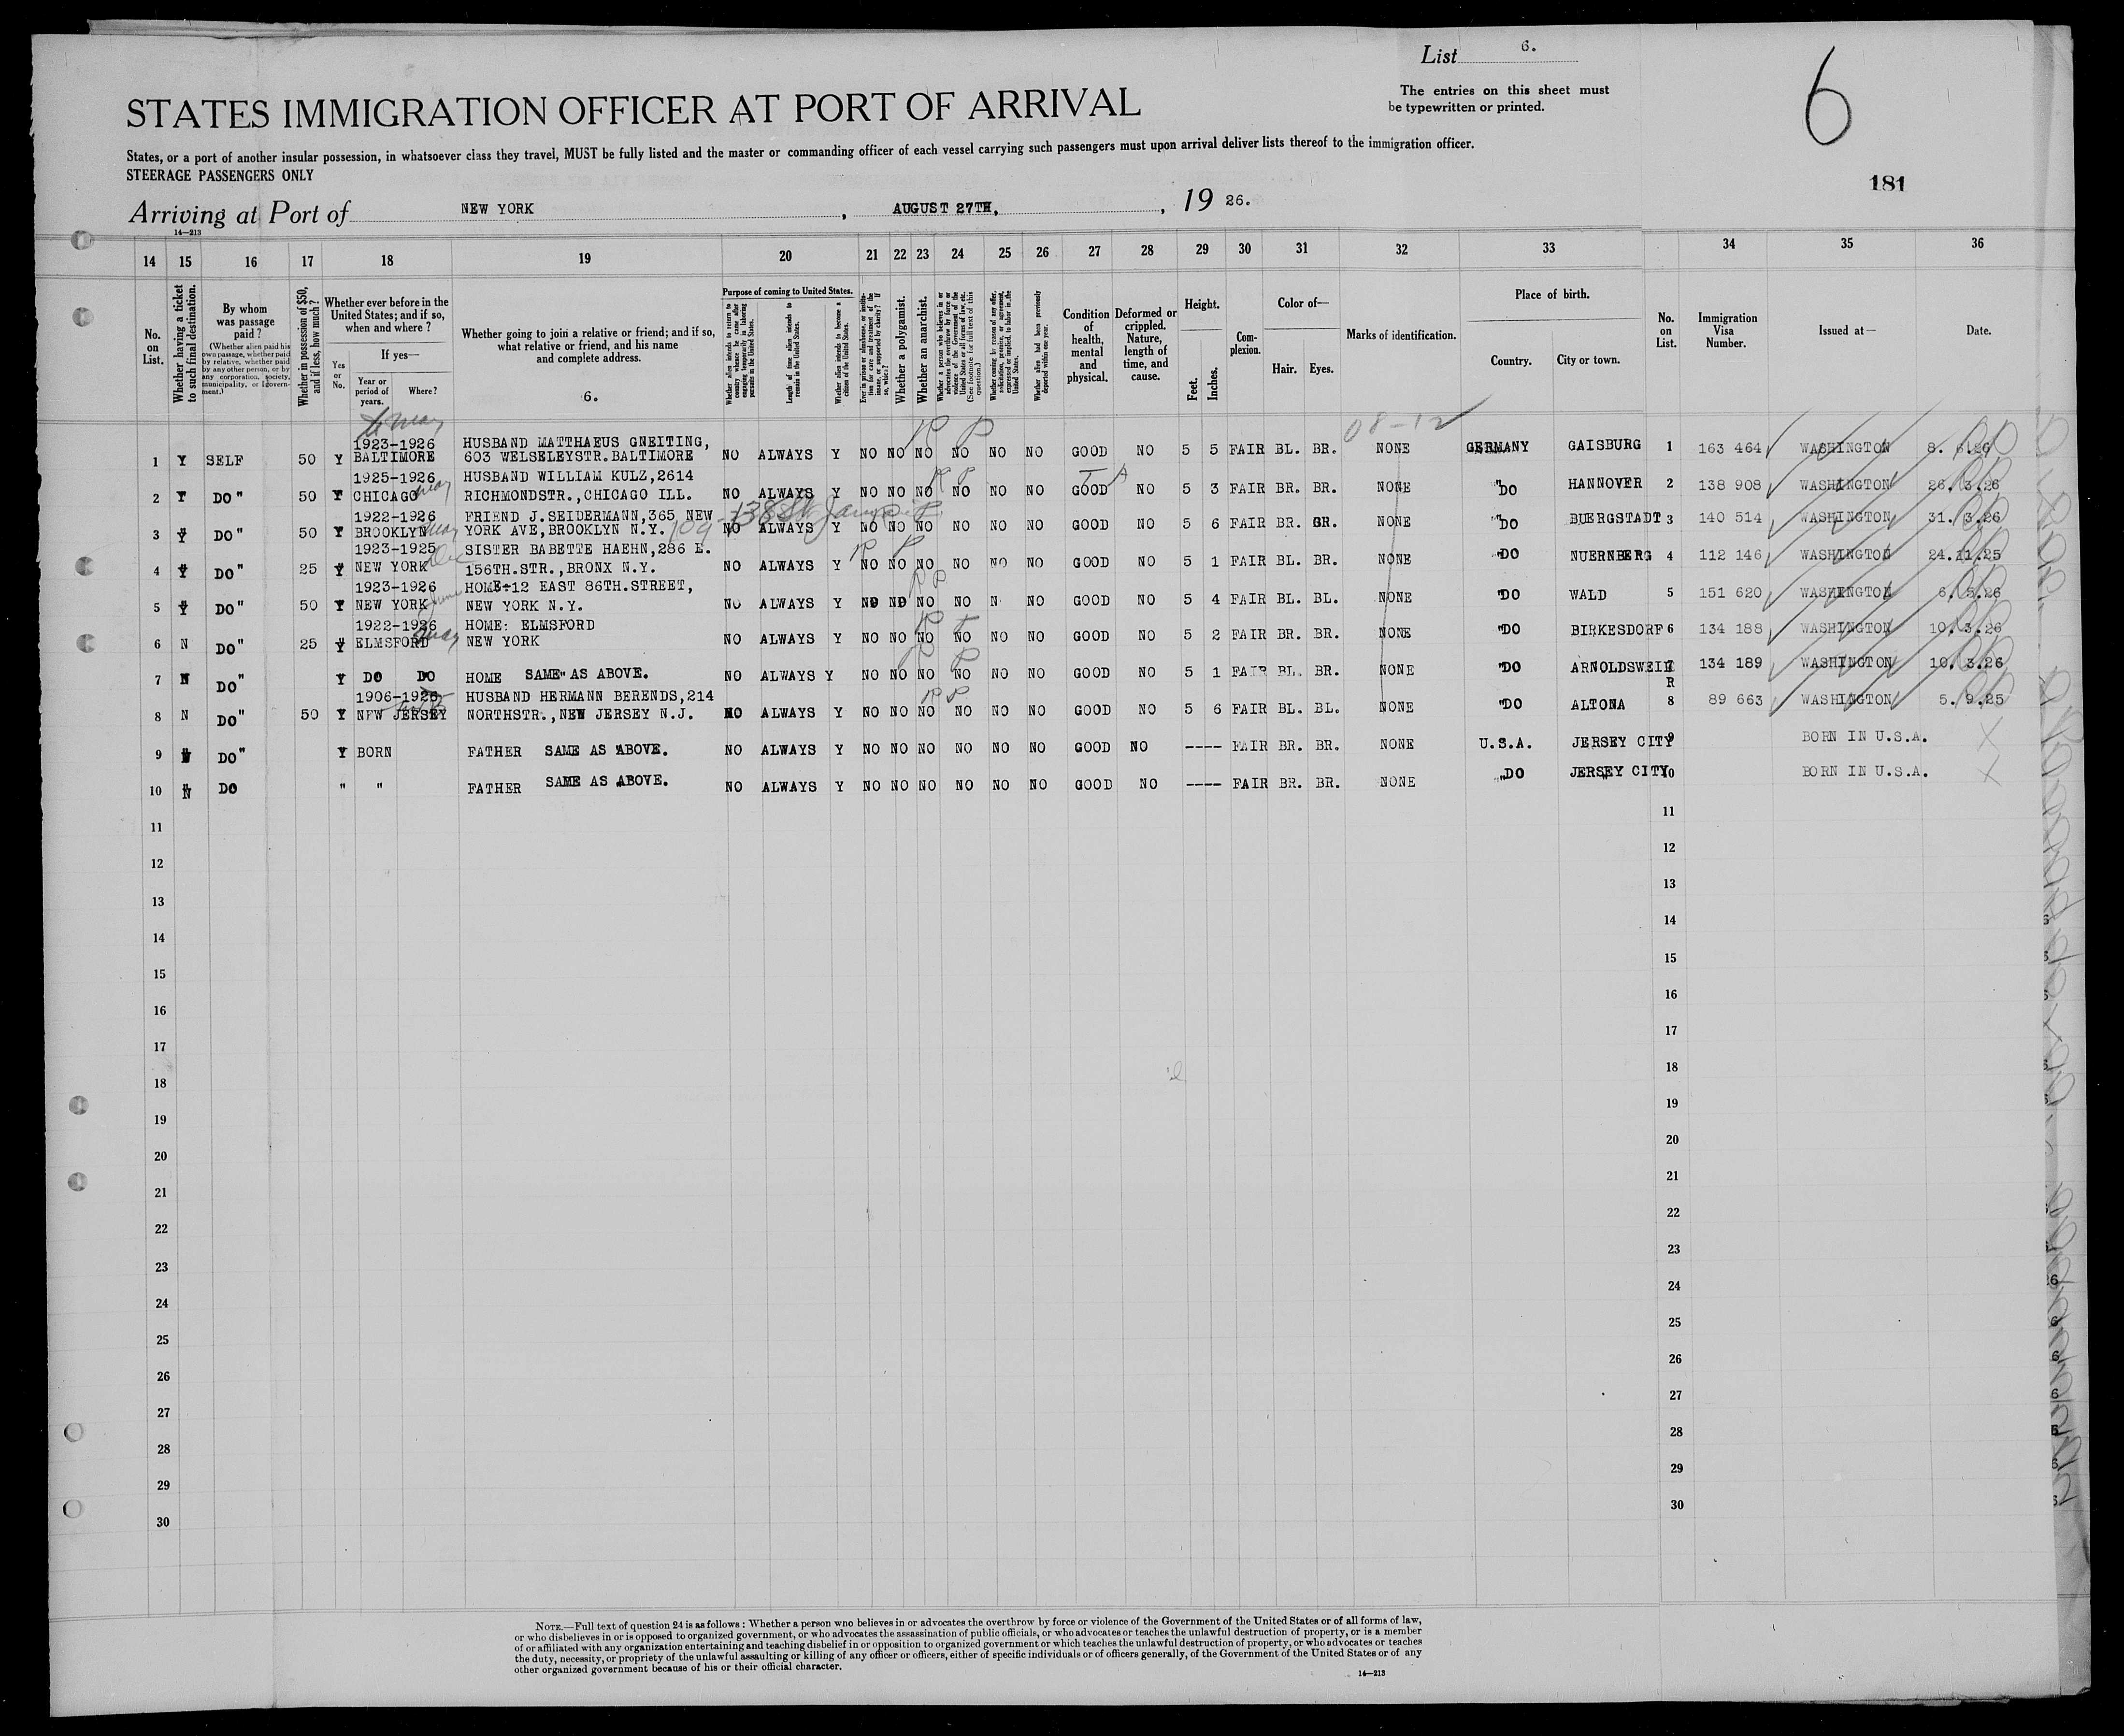 List 6.
The entries on this sheet must
be typewritten or printed.
6
STATES IMMIGRATION OFFICER AT PORT OF ARRIVAL
States, or a port of another insular possession, in whatsoever class they travel, MUST be fully listed and the master or commanding officer of each vessel carrying such passengers must upon arrival deliver lists thereof to the immigration officer.
STEERAGE PASSENGERS ONLY
181
Arriving at Port of NEW YORK, AUGUST 27TH, 19 26.
14—213
14 15 16 17 18 19 20 21 22 23 24 25 26 27 28 29 30 31 32 33 34 35 36
No. on List.
Whether having a ticket to such final destination.
By whom was passage paid?
(Whether alien paid his own passage, whether paid by relative, whether paid by any other person, or by any corporation, society, municipality, or government.)
Whether in possession of $50, and if less, how much?
Whether ever before in the United States; and if so, when and where?
Yes or No.
If yes—
Year or period of years.
Where?
Whether going to join a relative or friend; and if so, what relative or friend, and his name and complete address.
6.
Purpose of coming to United States.
Whether alien intends to return to country whence he came after engaging temporarily in laboring pursuits in the United States.
Length of time alien intends to remain in the United States.
Whether alien intends to become a citizen of the United States.
Ever in prison or almshouse, or institution for care and treatment of the insane, or supported by charity? If so, which?
Whether a polygamist.
Whether an anarchist.
Whether a person who believes in or advocates the overthrow by force or violence of the Government of the United States or all forms of law, etc. (See footnote for full text of this question.)
Whether coming by reason of any offer, solicitation, promise, or agreement, expressed or implied, to labor in the United States.
Whether alien had been previously deported within one year.
Condition of health, mental and physical.
Deformed or crippled. Nature, length of time, and cause.
Height.
Feet.
Inches.
Complexion.
Color of—
Hair.
Eyes.
Marks of identification.
Place of birth.
Country.
City or town.
No. on List.
Immigration Visa Number.
Issued at—
Date.
08-12
1923-1926 HUSBAND MATTHAEUS GNEITING,
1 Y SELF 50 Y BALTIMORE 603 WELSELEYSTR.BALTIMORE NO ALWAYS Y NO NO NO NO NO NO GOOD NO 5 5 FAIR BL. BR. NONE GERMANY GAISBURG 1 163 464 WASHINGTON 8. 6.26
1925-1926 HUSBAND WILLIAM KULZ,2614
2 Y DO" 50 Y CHICAGO RICHMONDSTR.,CHICAGO ILL. NO ALWAYS Y NO NO NO NO NO NO GOOD NO 5 3 FAIR BR. BR. NONE "DO HANNOVER 2 138 908 WASHINGTON 26. 3.26
1922-1926 FRIEND J.SEIDERMANN,365 NEW
3 Y DO" 50 Y BROOKLYN YORK AVE,BROOKLYN N.Y. NO ALWAYS Y NO NO NO NO NO NO GOOD NO 5 6 FAIR BR. GR. NONE "DO BUERGSTADT 3 140 514 WASHINGTON 31. 3.26
1923-1925 SISTER BABETTE HAEHN,286 E.
4 Y DO" 25 Y NEW YORK 156TH.STR.,BRONX N.Y. NO ALWAYS Y NO NO NO NO NO NO GOOD NO 5 1 FAIR BL. BR. NONE "DO NUERNBERG 4 112 146 WASHINGTON 24.11.25
1923-1926 HOME-12 EAST 86TH.STREET,
5 Y DO" 50 Y NEW YORK NEW YORK N.Y. NO ALWAYS Y NO NO NO NO N NO GOOD NO 5 4 FAIR BL. BL. NONE "DO WALD 5 151 620 WASHINGTON 6. 5.26
1922-1926 HOME: ELMSFORD
6 N DO" 25 Y ELMSFORD NEW YORK NO ALWAYS Y NO NO NO NO NO NO GOOD NO 5 2 FAIR BR. BR. NONE "DO BIRKESDORF 6 134 188 WASHINGTON 10. 3.26
7 N DO" Y DO DO HOME SAME" AS ABOVE. NO ALWAYS Y NO NO NO NO NO NO GOOD NO 5 1 FAIR BL. BR. NONE "DO ARNOLDSWEILER 7 134 189 WASHINGTON 10. 3.26
1906-1925 HUSBAND HERMANN BERENDS,214
8 N DO" 50 Y NEW JERSEY NORTHSTR.,NEW JERSEY N.J. NO ALWAYS Y NO NO NO NO NO NO GOOD NO 5 6 FAIR BL. BL. NONE "DO ALTONA 8 89 663 WASHINGTON 5. 9.25
9 N DO" Y BORN FATHER SAME AS ABOVE. NO ALWAYS Y NO NO NO NO NO NO GOOD NO ---- FAIR BR. BR. NONE U.S.A. JERSEY CITY 9 BORN IN U.S.A.
10 N DO " " FATHER SAME AS ABOVE. NO ALWAYS Y NO NO NO NO NO NO GOOD NO ---- FAIR BR. BR. NONE "DO JERSEY CITY 10 BORN IN U.S.A.
11 11
12 12
13 13
14 14
15 15
16 16
17 17
18 18
19 19
20 20
21 21
22 22
23 23
24 24
25 25
26 26
27 27
28 28
29 29
30 30
NOTE.—Full text of question 24 is as follows: Whether a person who believes in or advocates the overthrow by force or violence of the Government of the United States or of all forms of law,
or who disbelieves in or is opposed to organized government, or who advocates the assassination of public officials, or who advocates or teaches the unlawful destruction of property, or is a member
of or affiliated with any organization entertaining and teaching disbelief in or opposition to organized government or which teaches the unlawful destruction of property, or who advocates or teaches
the duty, necessity, or propriety of the unlawful assaulting or killing of any officer or officers, either of specific individuals or of officers generally, of the Government of the United States or of any
other organized government because of his or their official character.
14—213